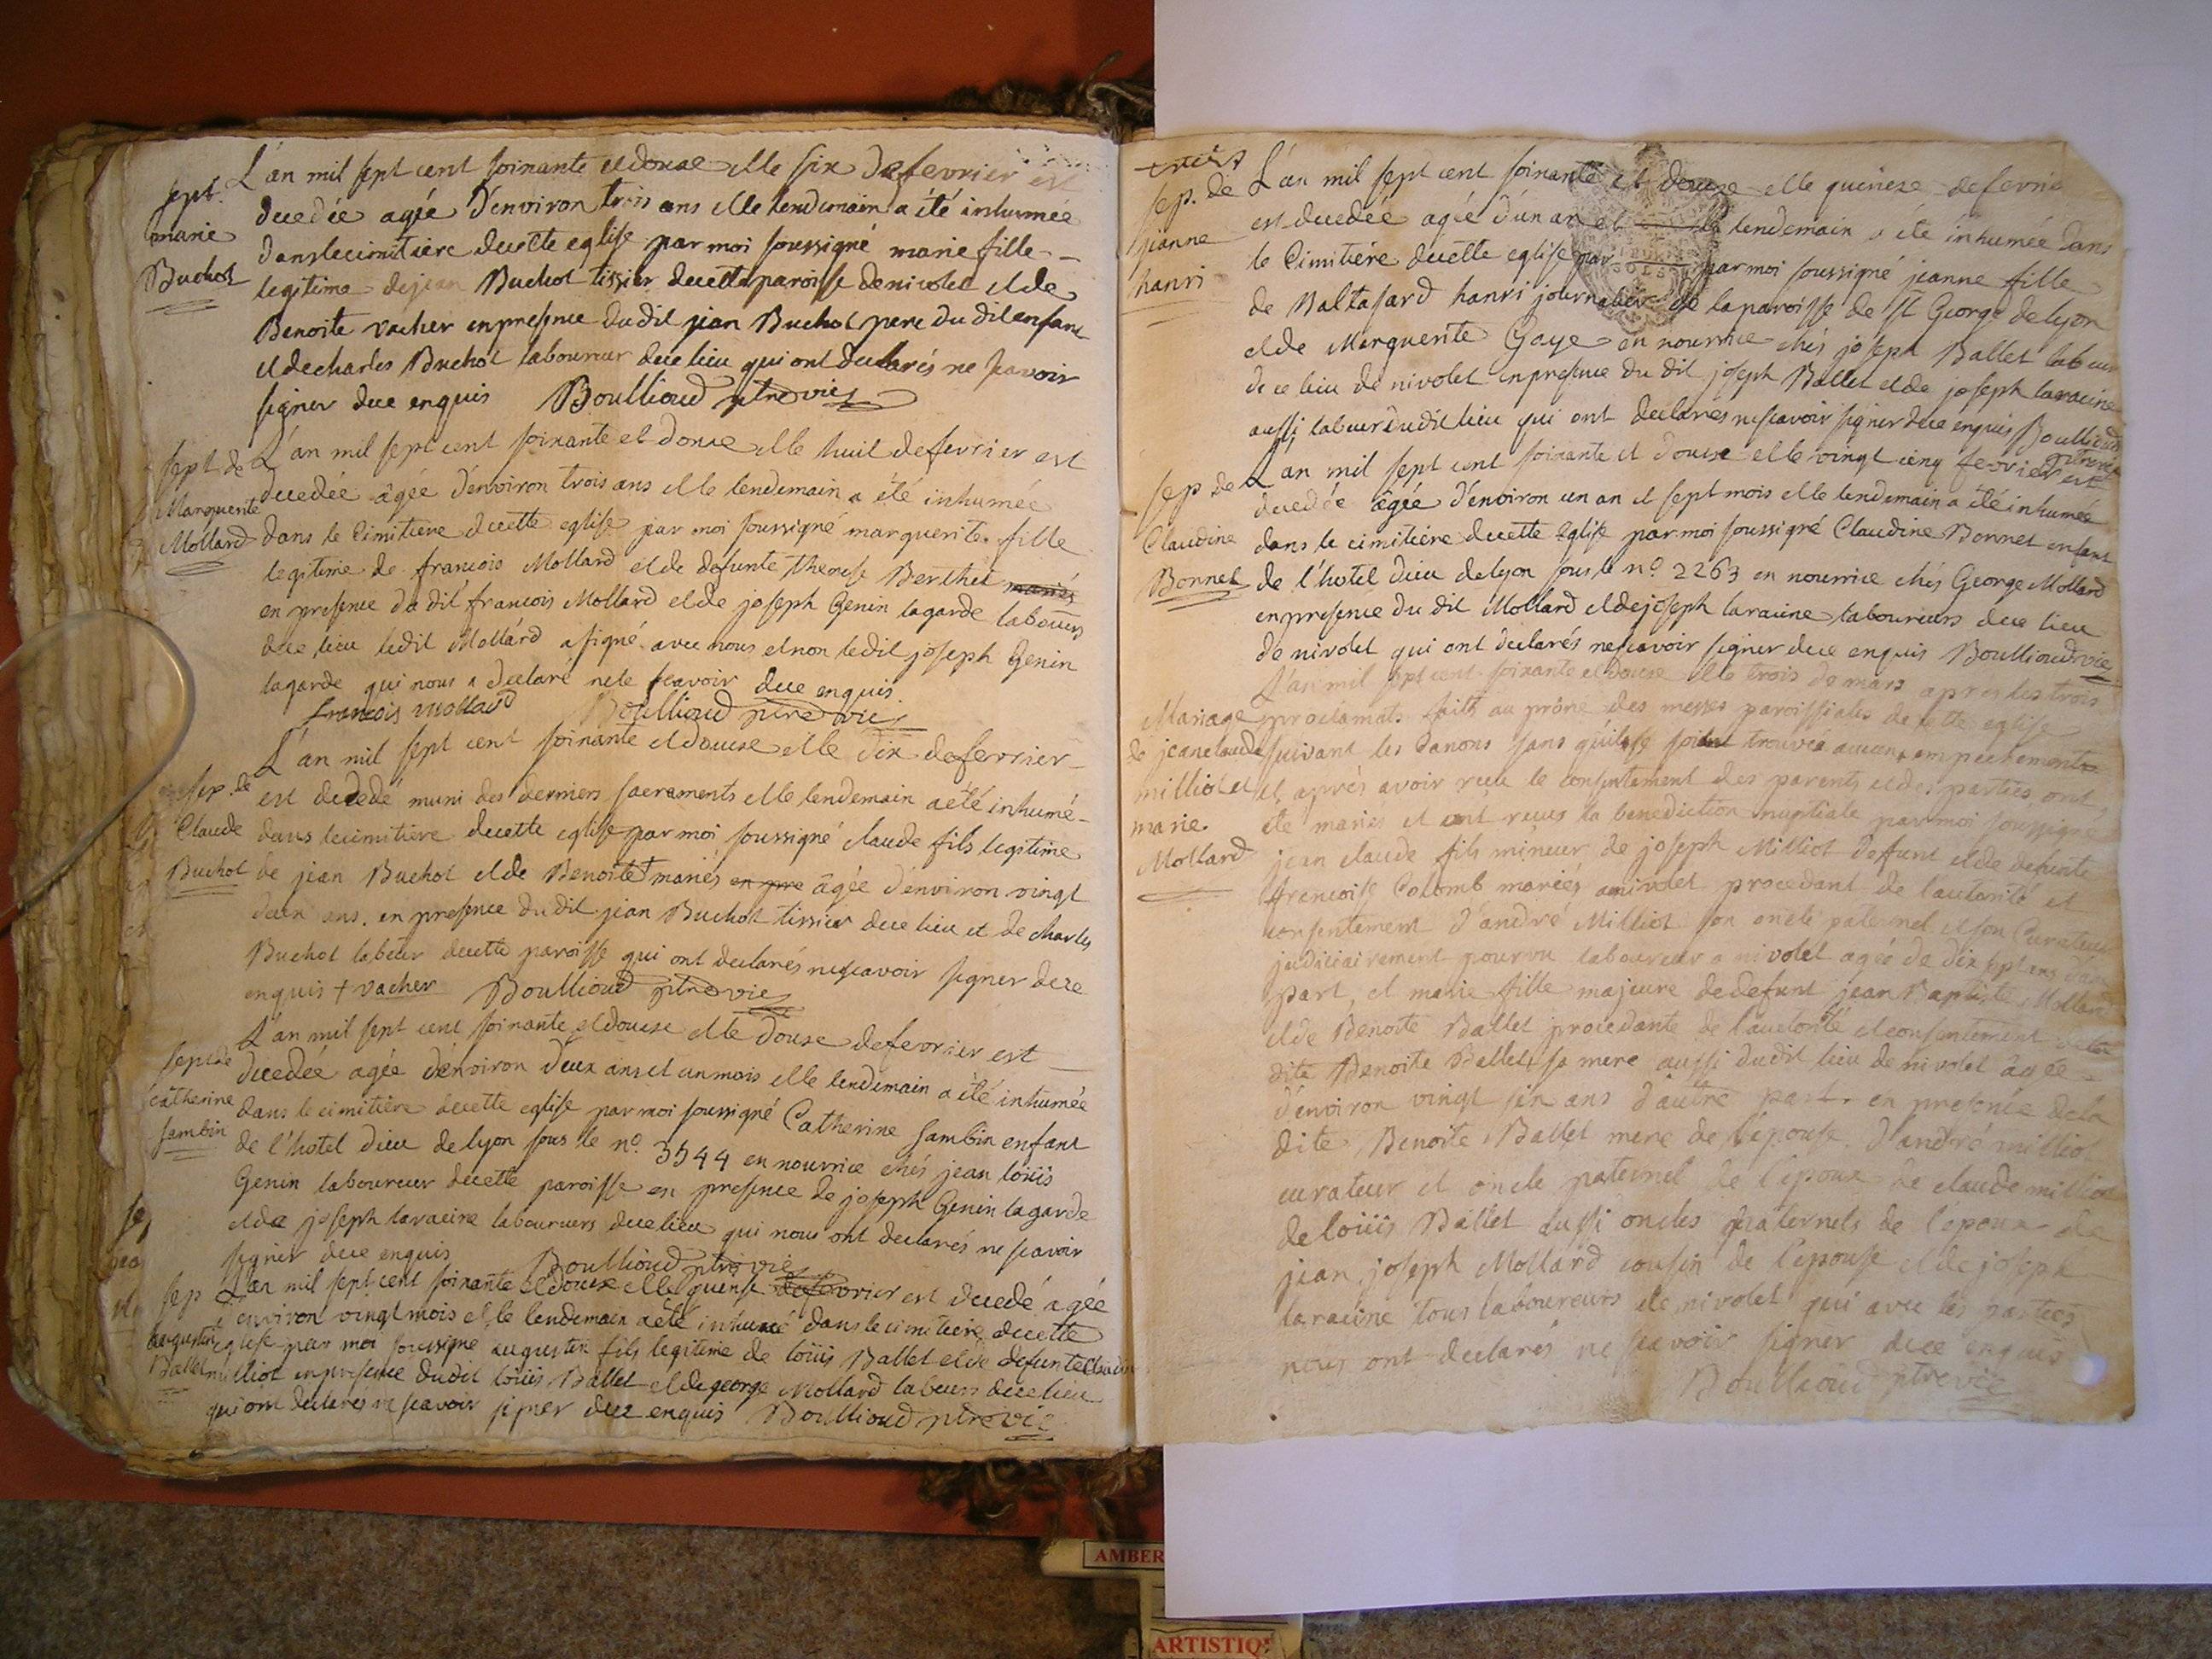 sept.
marie
Buchot
L'an mil sept cent soixante et douze et le six de fevrier est
decedée agée d'environ trois ans et le lendemain a été inhumée
dans le cimitiere de cette eglise par moi soussigné marie fille
legitime de jean Buchot tissier de cette paroisse de nivolet et de
Benoite vacher en presence du dit jean Buchot pere du dit enfant
et de charles Buchot laboureur de ce lieu qui ont declarés ne scavoir
signer de ce enquis Boullioud ptre vic
sept de
Marguerite
Mollard
L'an mil sept cent soixante et douze et le huit de fevrier est
decedée âgée d'environ trois ans et le lendemain a été inhumée
dans le Cimitiere de cette eglise par moi soussigné marguerite fille
legitime de francois Mollard et de defunte therese Berthet mariés
en presence du dit francois Mollard et de joseph Genin lagarde labours
de ce lieu le dit Mollard a signé avec nous et non le dit joseph Genin
lagarde qui nous a declaré ne le scavoir de ce enquis
francois mollard Boullioud ptre vic
sep. de
Claude
Buchot
L'an mil sept cent soixante et douze et le dix de fevrier
est decedé muni des derniers sacraments et le lendemain a été inhumé
dans le cimitiere de cette eglise par moi soussigné claude fils legitime
de jean Buchot et de Benoite + mariés en pre âgée d'environ vingt
deux ans. en presence du dit jean Buchot tissier de ce lieu et de charles
Buchot labeur de cette paroisse qui ont declarés ne scavoir signer de ce
enquis + vacher Boullioud ptre vic
sept de
catherine
sambin
L'an mil sept cent soixante et douze et le douze de fevrier est
decedée agée d'environ deux ans et un mois et le lendemain a été inhumée
dans le cimitiere de cette eglise par moi soussigné Catherine Sambin enfant
de l'hotel dieu de lyon sous le n.º 3544 en nourrice chés jean loüis
Genin laboureur de cette paroisse en presence de joseph Genin lagarde
et de joseph laracine laboureurs de ce lieu qui nous ont declarés ne scavoir
signer de ce enquis Boullioud ptre vic
sep
augustin
Ballet
L'an mil sept cent soixante et douze et le quinse de fevrier est decedé agée
d'environ vingt mois et le lendemain a été inhumé dans le cimitiere de cette
eglise par moi soussigné augustin fils legitime de loüis Ballet et de defunte Claudine
milliot en presence du dit loüis Ballet et de george Mollard labours de ce lieu
qui ont declarés ne scavoir signer de ce enquis Boullioud ptre vic
sep. de
jeanne
hanri
L'an mil sept cent soixante et douze et le quinze de fevrier
est decedée agée d'un an et le lendemain a été inhumée dans
le Cimitiére de cette eglise par par moi soussigné jeanne fille
de Baltasard hanri journalier de la paroisse de St George de lyon
et de Marguerite Gaye en nourrice chés joseph Ballet labeur
de ce lieu de nivolet en presence du dit joseph Ballet et de joseph laracine
aussi labeur du dit lieu qui ont declarés ne scavoir signer de ce enquis Boullioud
ptre vic
sep de
Claudine
Bonnet
L'an mil sept cent soixante et douze et le vingt cinq fevrier est
decedée âgée d'environ un an et sept mois et le lendemain a été inhumée
dans le cimitiere de cette Eglise par moi soussigné Claudine Bonnet enfant
de l'hotel dieu de lyon sous le n.º 2263 en nourrice chés George Mollard
en presence du dit Mollard et de joseph laracine laboureurs de ce lieu
de nivolet qui ont declarés ne scavoir signer de ce enquis Boullioud vic
Mariage
de jean claude
milliot et
marie
Mollard
L'an mil sept cent soixante et douze et le trois de mars apres les trois
proclamats faits au prône des messes paroissiales de cette eglise
suivant les Canons sans qu'il se soit trouvés aucun empechement
et aprés avoir recu le consentement des parents et des parties, ont
été mariés et ont recus la benediction nuptiale par moi soussigné
jean claude fils mineur de joseph Milliot deffunt et de defunte
francoise Colomb mariés a nivolet procedant de l'autorité et
consentement d'andré Milliot son oncle paternel et son Curateur
judiciairement pourvu laboureur a nivolet agée de dix sept ans d'une
part, et marie fille majeure de defunt jean Baptiste Mollard
et de Benoite Ballet procedante de l'autorité et consentement de la
dite Benoite Ballet sa mere aussi du dit lieu de nivolet âgée
d'environ vingt six ans d'autre part. en presence de la
dite Benoite Ballet mere de l'épouse d'andré milliot
curateur et oncle paternel de l'epoux de claude milliot
de loüis Ballet aussi oncles paternels de l'epoux de
jean joseph Mollard cousin de l'epouse et de joseph
laracine tous laboureurs de nivolet qui avec les parties
nous ont declarés ne scavoir signer de ce enquis
Boullioud ptre vic
AMBER
ARTISTIQ